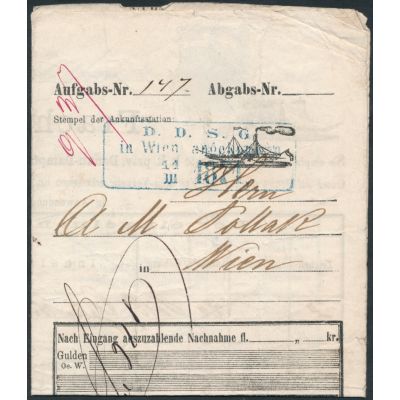 Aufgabs-Nr. 147. Abgabs-Nr.
Stempel der Ankunftsstation:
D. D. S. G.
in Wien angekommen
11
III 187
Herrn
A M Pollak
in Wien
Nach Eingang auszuzahlende Nachnahme fl. „ kr.
Gulden
Oe. W.